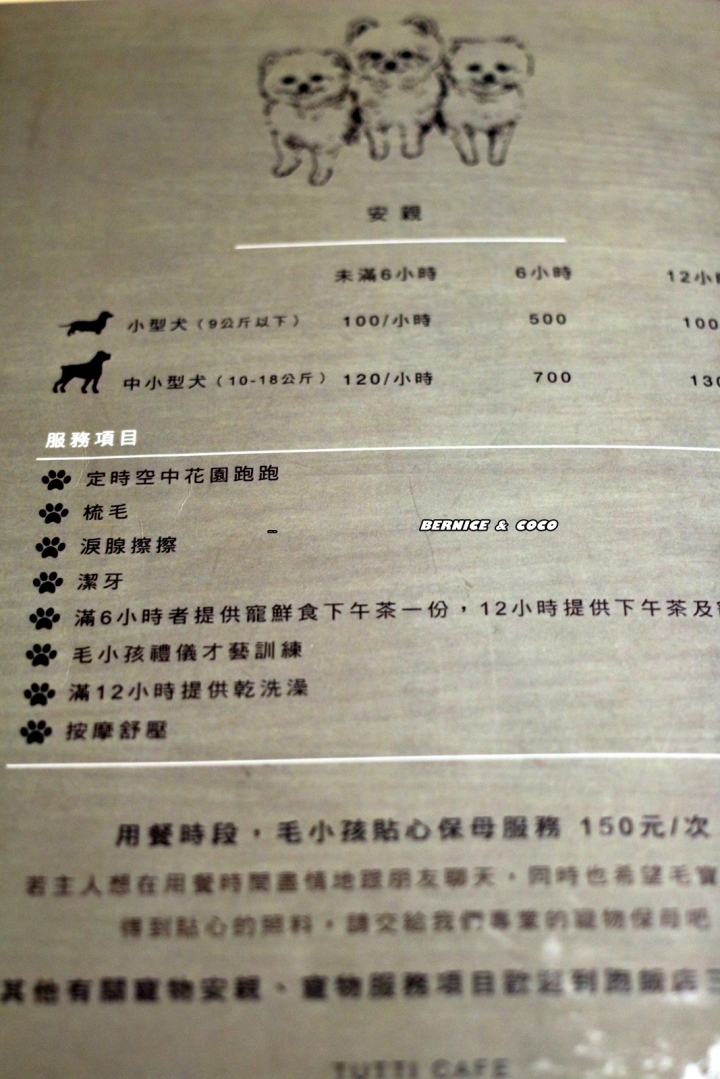 安親
未滿6小時 6小時 12小
小型犬（9公斤以下） 100/小時 500 100
中小型犬（10-18公斤） 120/小時 700 130
服務項目
定時空中花園跑跑
梳毛
BERNICE & COCO
淚腺擦擦
潔牙
滿6小時者提供寵鮮食下午茶一份，12小時提供下午茶及
毛小孩禮儀才藝訓練
滿12小時提供乾洗澡
按摩舒壓
用餐時段，毛小孩貼心保母服務 150元/次
若主人想在用餐時間盡情地跟朋友聊天，同時也希望毛寶
得到貼心的照料，請交給我們專業的寵物保母吧
其他有關寵物安親、寵物服務項目歡迎到跑飯店
TUTTI CAFE